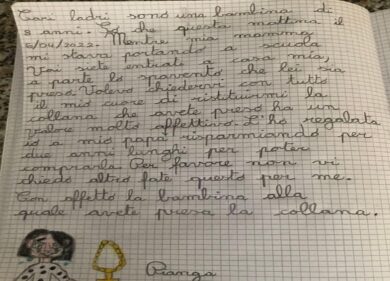 Cari ladri sono una bambina di
8 anni. So che questa mattina il
5/04/2022. Mentre mia mamma
mi stava portando a scuola
Voi siete entrati a casa mia,
a parte lo spavento che lei sia
preso. Volevo chiedervi con tutto
il mio cuore di ristituirmi la
collana che avete preso ha un
valore molto affettivo. L'ho regalata
io a mio papà risparmiando per
due anni lunghi per poter
comprarla. Per favore non vi
chiedo altro fate questo per me.
Con affetto la bambina alla
quale avete presa la collana.
Pianga